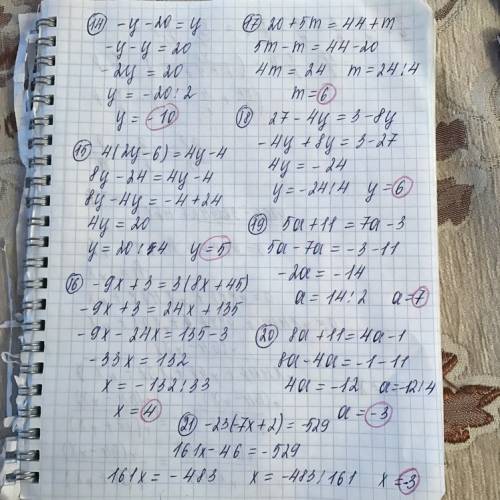 14 -y-20=y
-y-y=20
-2y=20
y=-20:2
y=-10
15 4(2y-6)=4y-4
8y-24=4y-4
8y-4y=-4+24
4y=20
y=20:4 y=5
16 -9x+3=3(8x+45)
-9x+3=24x+135
-9x-24x=135-3
-33x=132
x=-132:33
x=4
17 20+5m=44+m
5m-m=44-20
4m=24 m=24:4
m=6
18 27-4y=3-8y
-4y+8y=3-27
4y=-24
y=-24:4 y=6
19 5a+11=7a-3
5a-7a=-3-11
-2a=-14
a=14:2 a=7
20 8a+11=4a-1
8a-4a=-1-11
4a=-12 a=-12:4
a=-3
21 -23(-7x+2)=-529
161x-46=-529
161x=-483 x=-483:161 x=-3